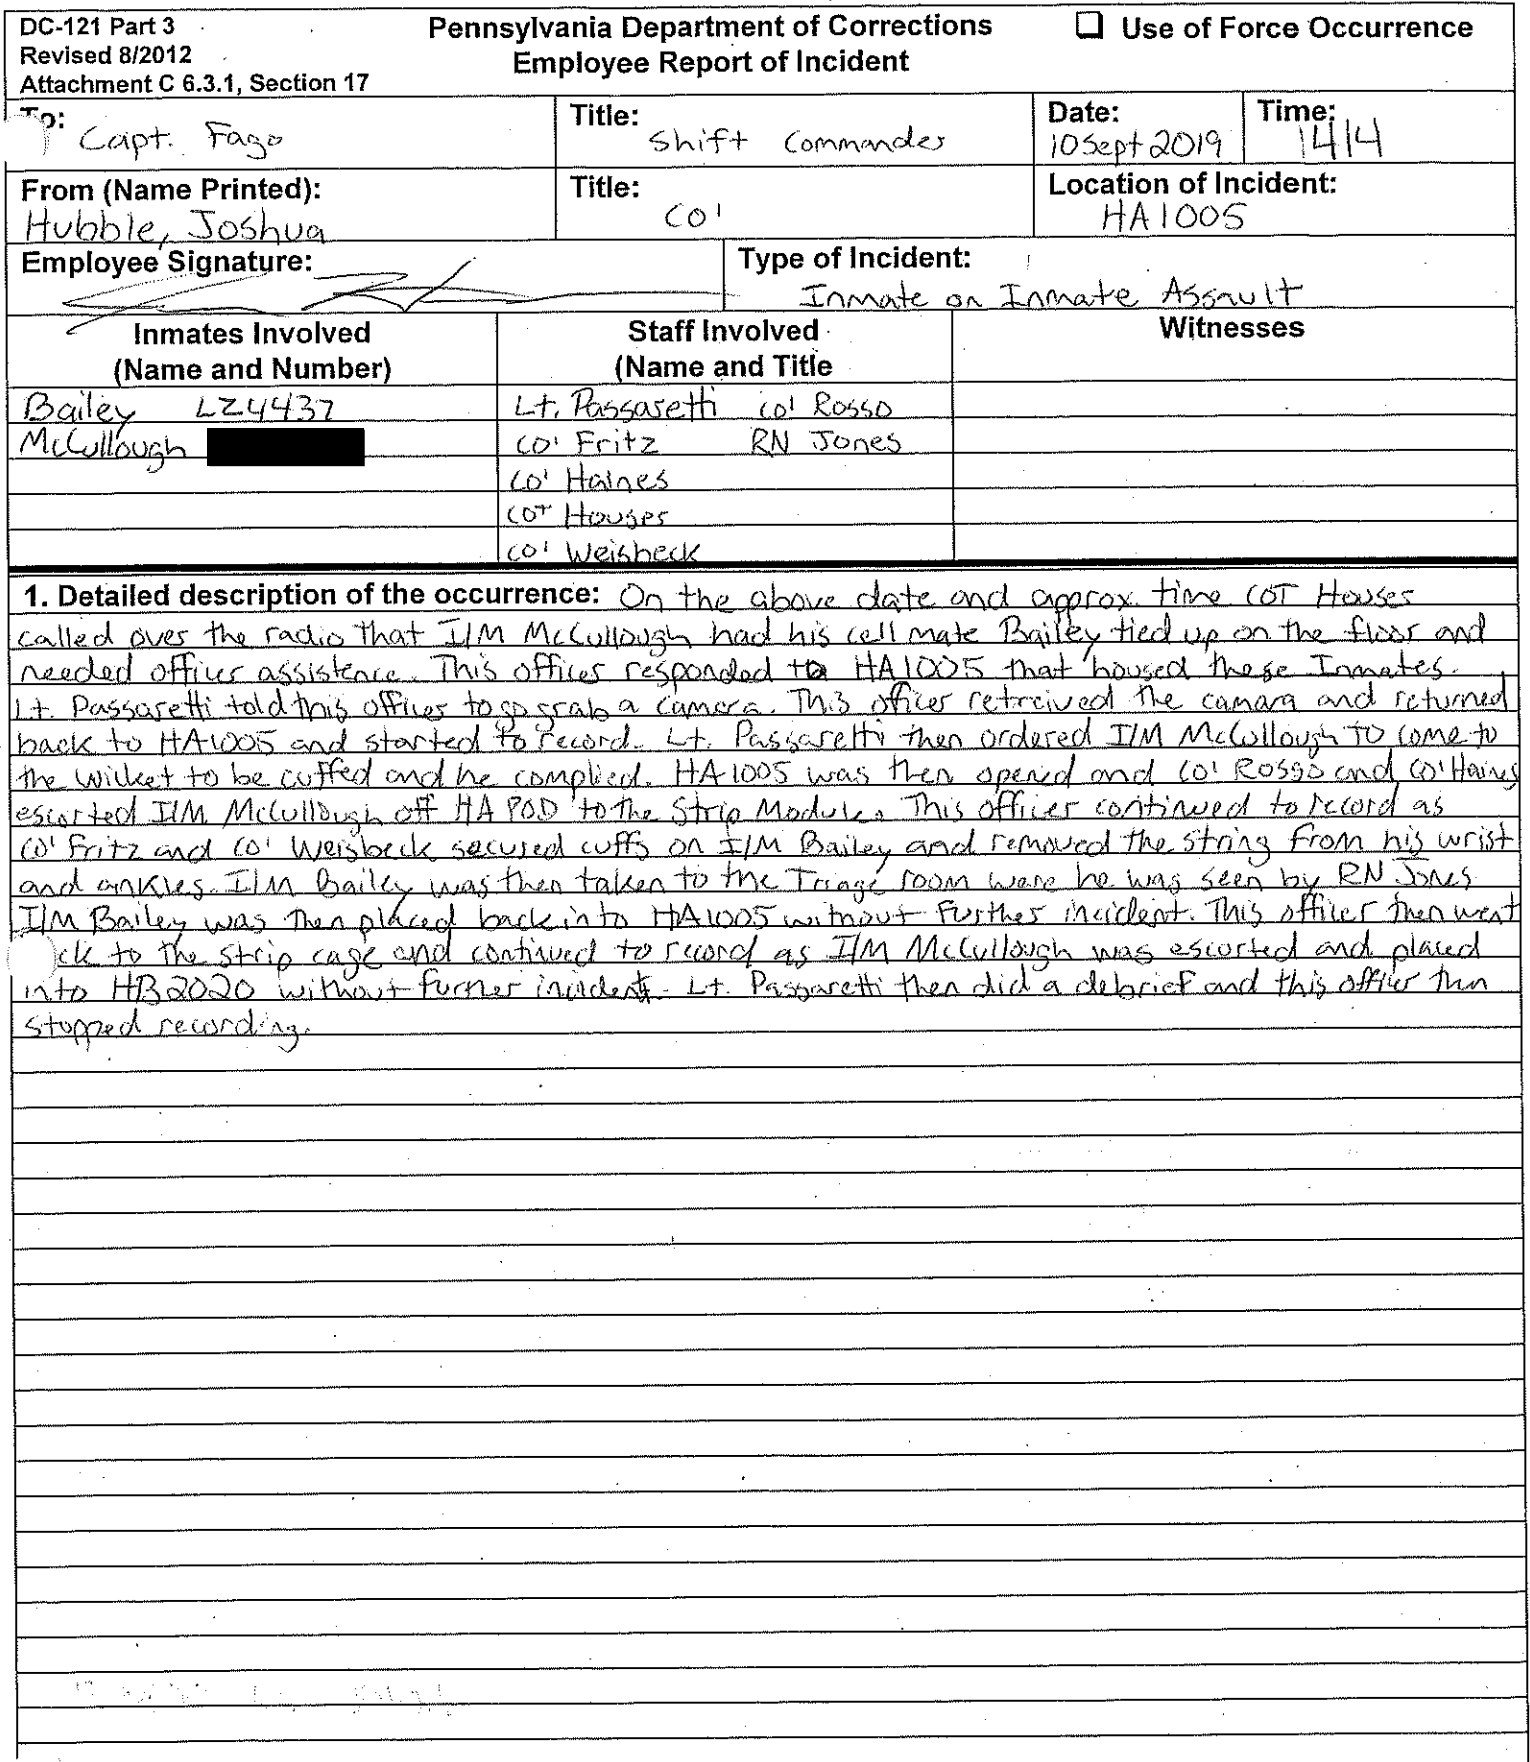 DC-121 Part 3
Revised 8/2012
Attachment C 6.3.1, Section 17
Pennsylvania Department of Corrections
Employee Report of Incident
❑ Use of Force Occurrence
To: Capt. Fago
Title: Shift Commander
Date: 10 Sept 2019
Time: 1414
From (Name Printed): Hubble, Joshua
Title: CO1
Location of Incident: HA1005
Employee Signature:
Type of Incident: Inmate on Inmate Assault
Inmates Involved
(Name and Number)
Staff Involved
(Name and Title
Witnesses
Bailey LZ4437
McCullough
Lt. Passaretti CO1 Rosso
CO1 Fritz RN Jones
CO1 Haines
COT Houser
CO1 Weisbeck
1. Detailed description of the occurrence: On the above date and approx. time COT Houser
called over the radio that I/M McCullough had his cell mate Bailey tied up on the floor and
needed officer assistence. This officer responded to HA1005 that housed these Inmates.
Lt. Passaretti told this officer to go grab a camera. This officer retreived the camara and returned
back to HA1005 and started to record. Lt. Passaretti then ordered I/M McCullough to come to
the wicket to be cuffed and he complied. HA1005 was then opened and CO1 Rosso and CO1 Haines
escorted I/M McCullough off HA POD to the Strip Module. This officer continued to record as
CO1 Fritz and CO1 Weisbeck secured cuffs on I/M Bailey and removed the string from his wrist
and ankles. I/M Bailey was then taken to the Triage room were he was seen by RN Jones
I/M Bailey was then placed back into HA1005 without further incident. This officer then went
ck to the strip cage and continued to record as I/M McCullough was escorted and placed
into HB2020 without further incident. Lt. Passaretti then did a debrief and this officer then
stopped recording.